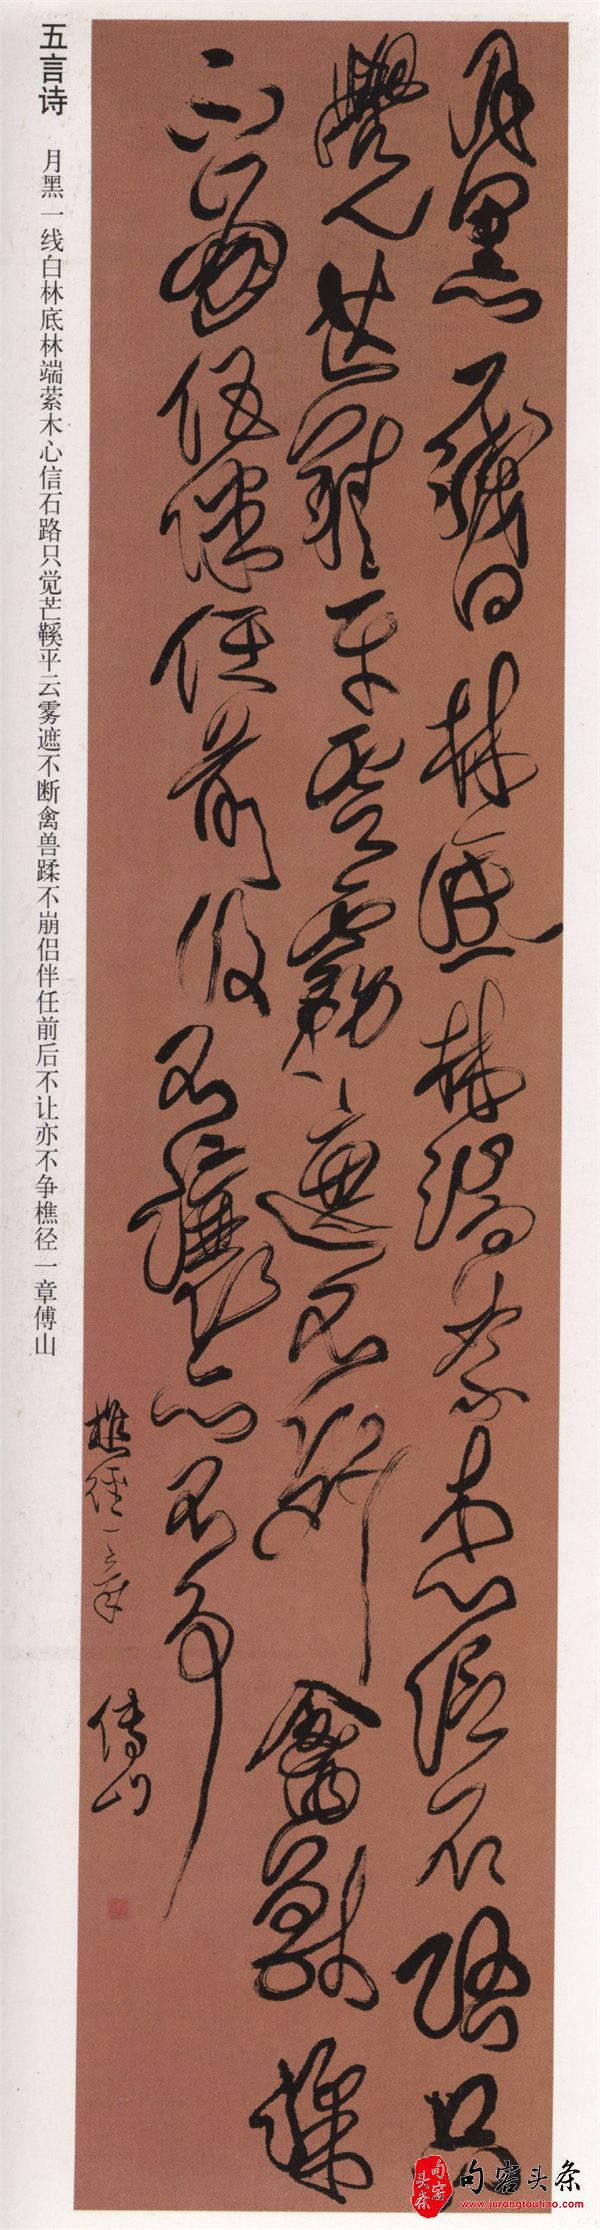 五言诗
月黑一线白林底林端萦木心信石路只觉芒鞵平云雾遮不断禽兽蹂不崩侣伴任前后不让亦不争樵径一章傅山
月黑一綫白林底林端縈木心信石路只
覺芒鞵平雲霧遮不斷禽獸蹂
不崩侶伴任前後不讓亦不爭
樵徑一章 傅山
句容头条
句容头条
www.jurongtoutiao.com